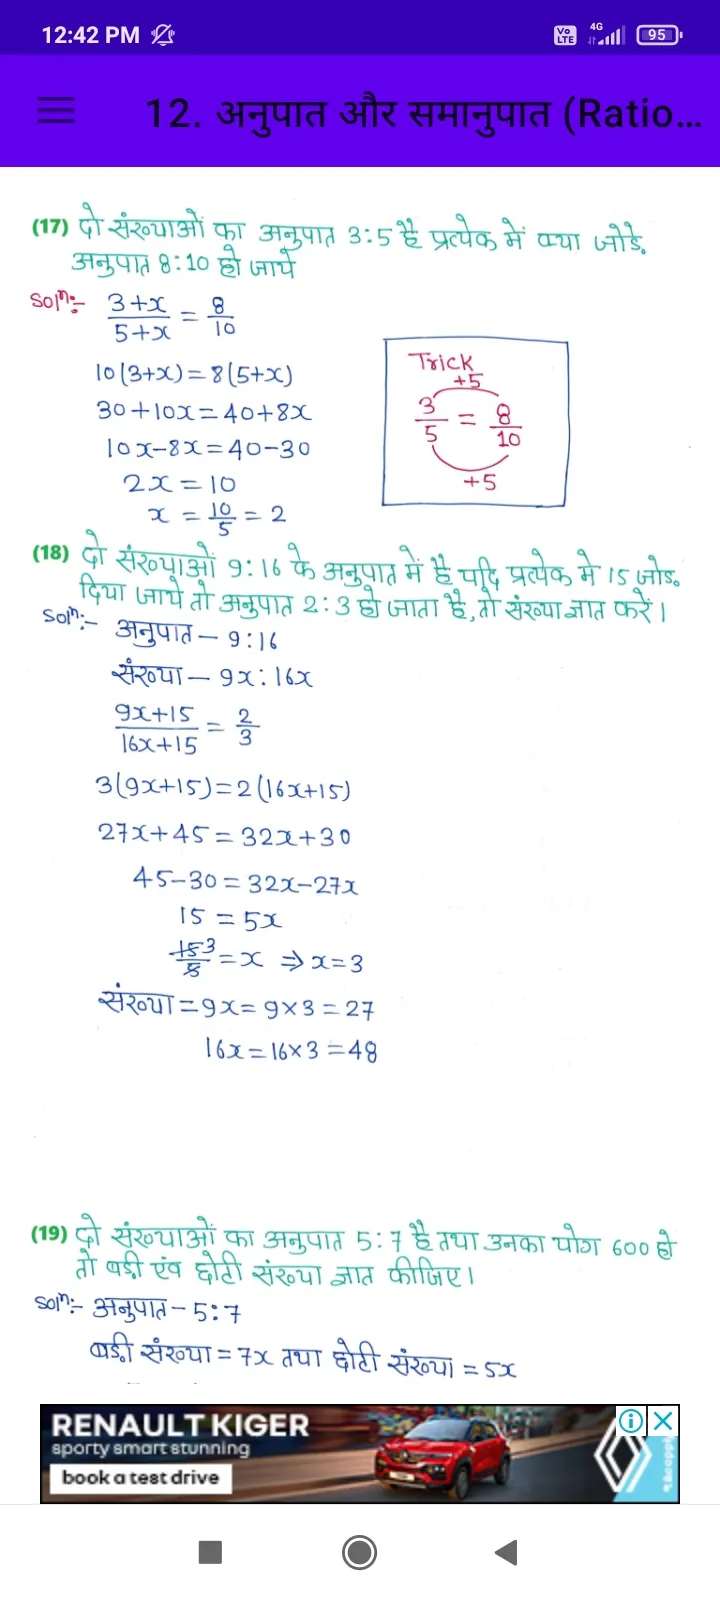 12:42 PM
Vo LTE 4G 95
12. अनुपात और समानुपात (Ratio...
(17) दो संख्याओं का अनुपात 3:5 है प्रत्येक में क्या जोडे.
अनुपात 8:10 हो जाये
Solⁿ:- (3+x)/(5+x) = 8/10
10(3+x)=8(5+x)
30+10x=40+8x
10x-8x=40-30
2x=10
x = 10/5 = 2
Trick
+5
3/5 = 8/10
+5
(18) दो संख्याओं 9:16 के अनुपात में है यदि प्रत्येक मे 15 जोड.
दिया जाये तो अनुपात 2:3 हो जाता है, तो संख्या ज्ञात करें।
Solⁿ:- अनुपात - 9:16
संख्या - 9x:16x
(9x+15)/(16x+15) = 2/3
3(9x+15)=2(16x+15)
27x+45=32x+30
45-30=32x-27x
15=5x
15/5 3 = x ⇒ x=3
संख्या=9x=9×3=27
16x=16×3=48
(19) दो संख्याओं का अनुपात 5:7 है तथा उनका योग 600 हो
तो बडी़ एंव छोटी संख्या ज्ञात कीजिए।
Solⁿ:- अनुपात - 5:7
बडी़ संख्या = 7x तथा छोटी संख्या = 5x
RENAULT KIGER
sporty smart stunning
book a test drive